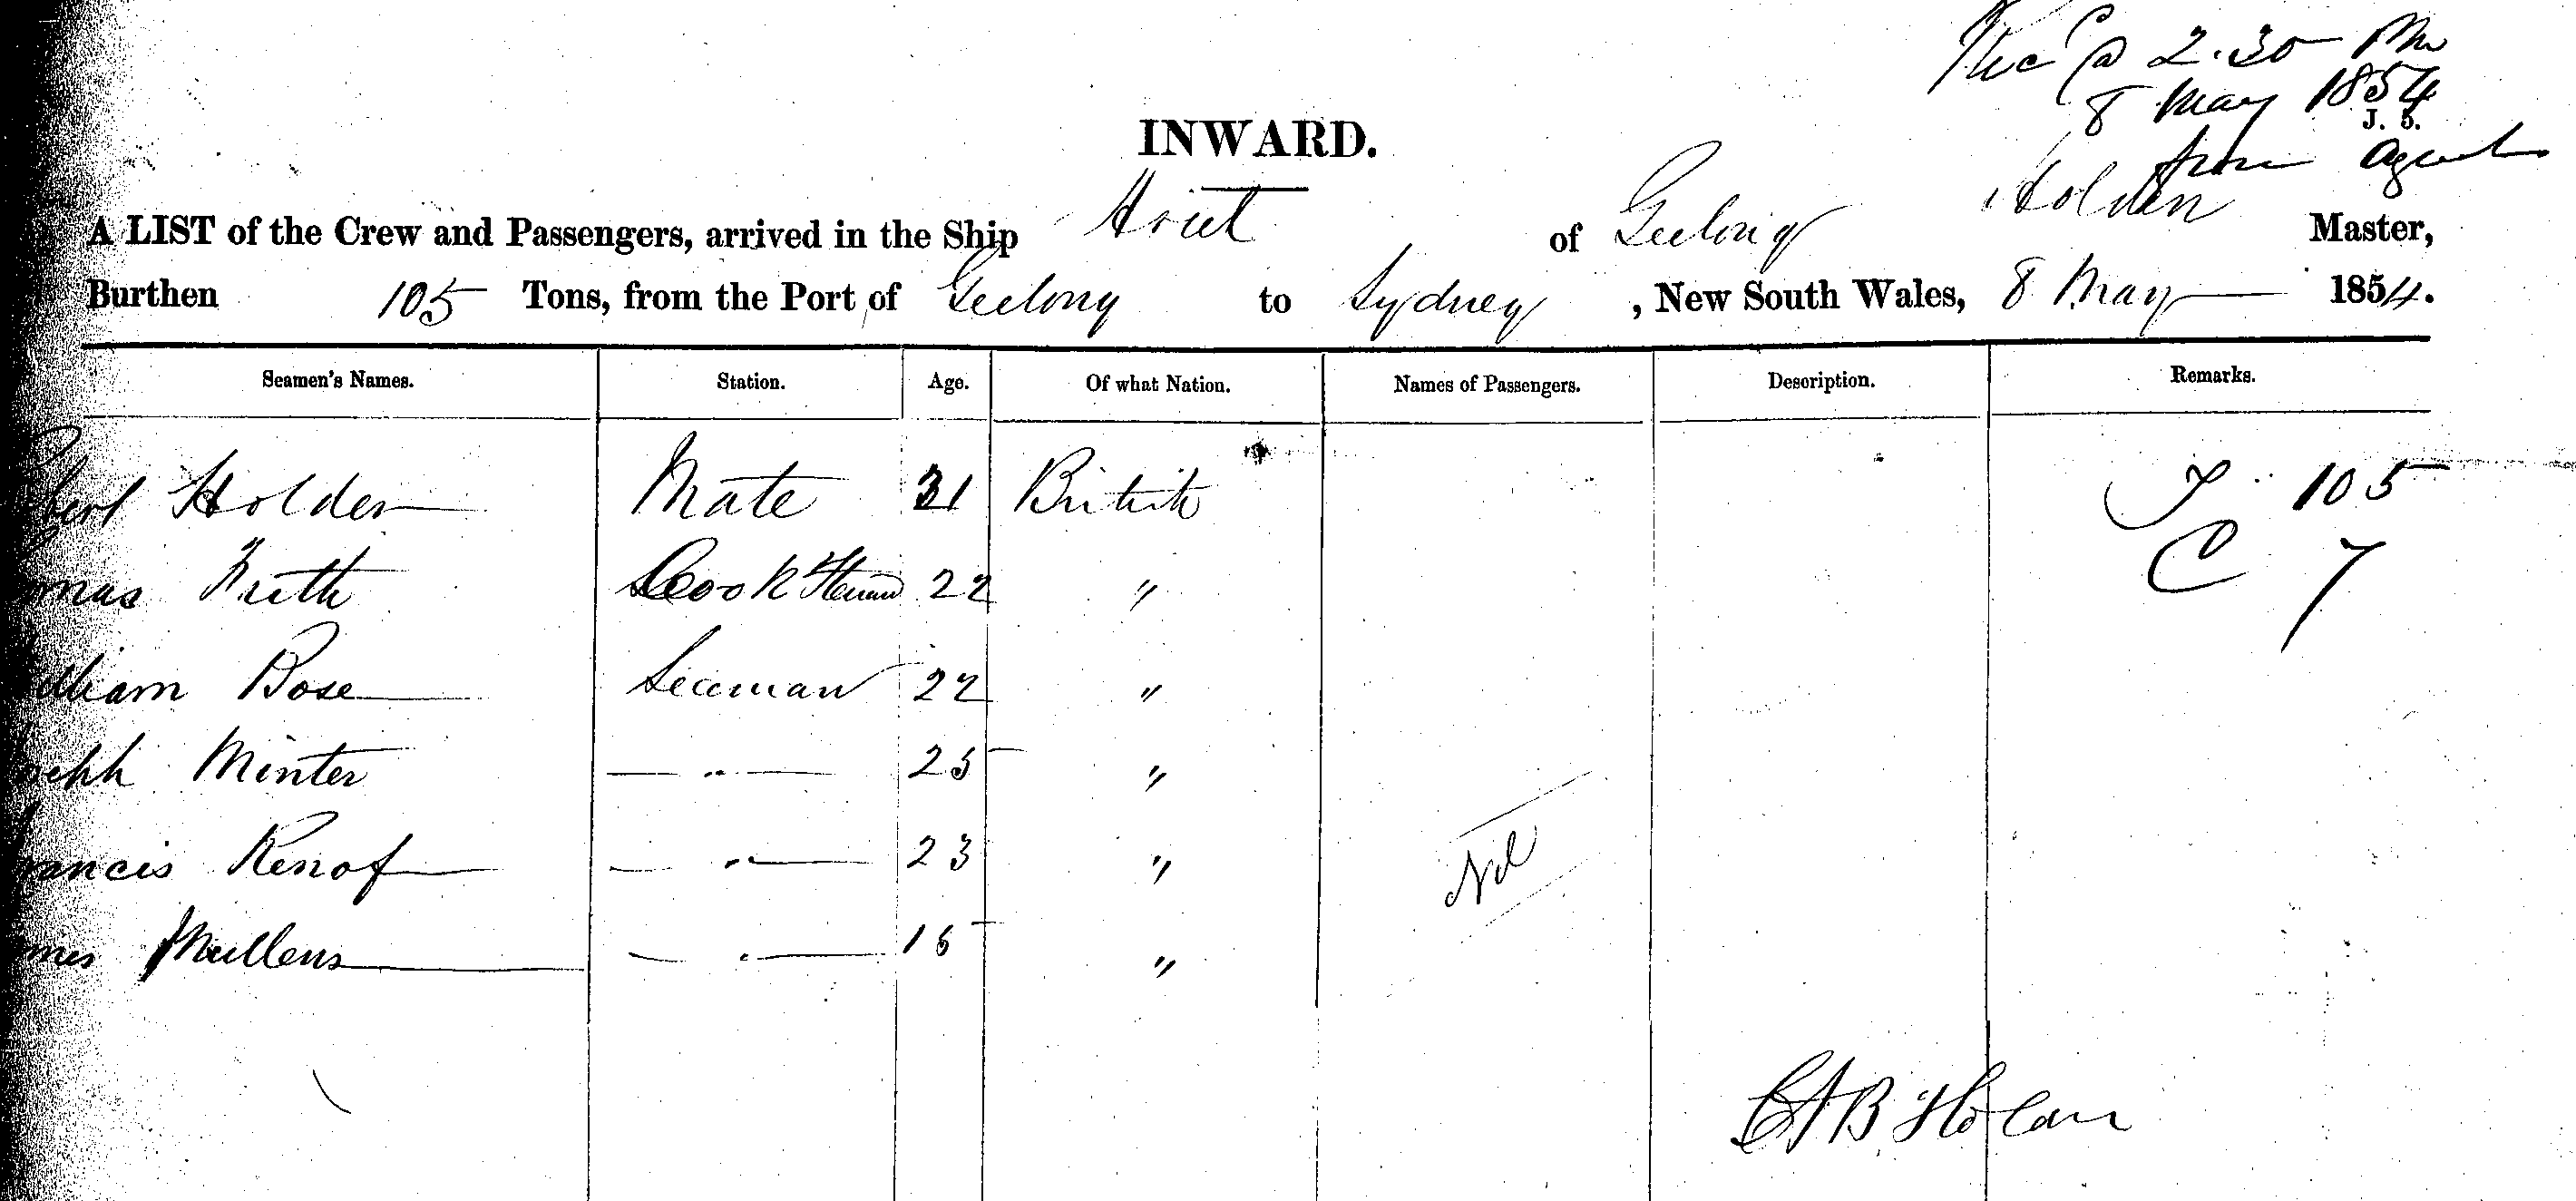 Rec @ 2.30 PM
8 May 1854
J. S.
from Agents
INWARD.
A LIST of the Crew and Passengers, arrived in the Ship of Geelong Holden Master,
Burthen 105 Tons, from the Port of Geelong to Sydney , New South Wales, 8 May 1854.
Seamen's Names. Station. Age. Of what Nation. Names of Passengers. Description. Remarks.
Holden Mate 31 British T 105
Cook Steward 22 " C 7
William Bose Seaman 22 "
Minter — " — 25 "
Francis Renof — " — 23 " Nil
Mullens — " — 15 "